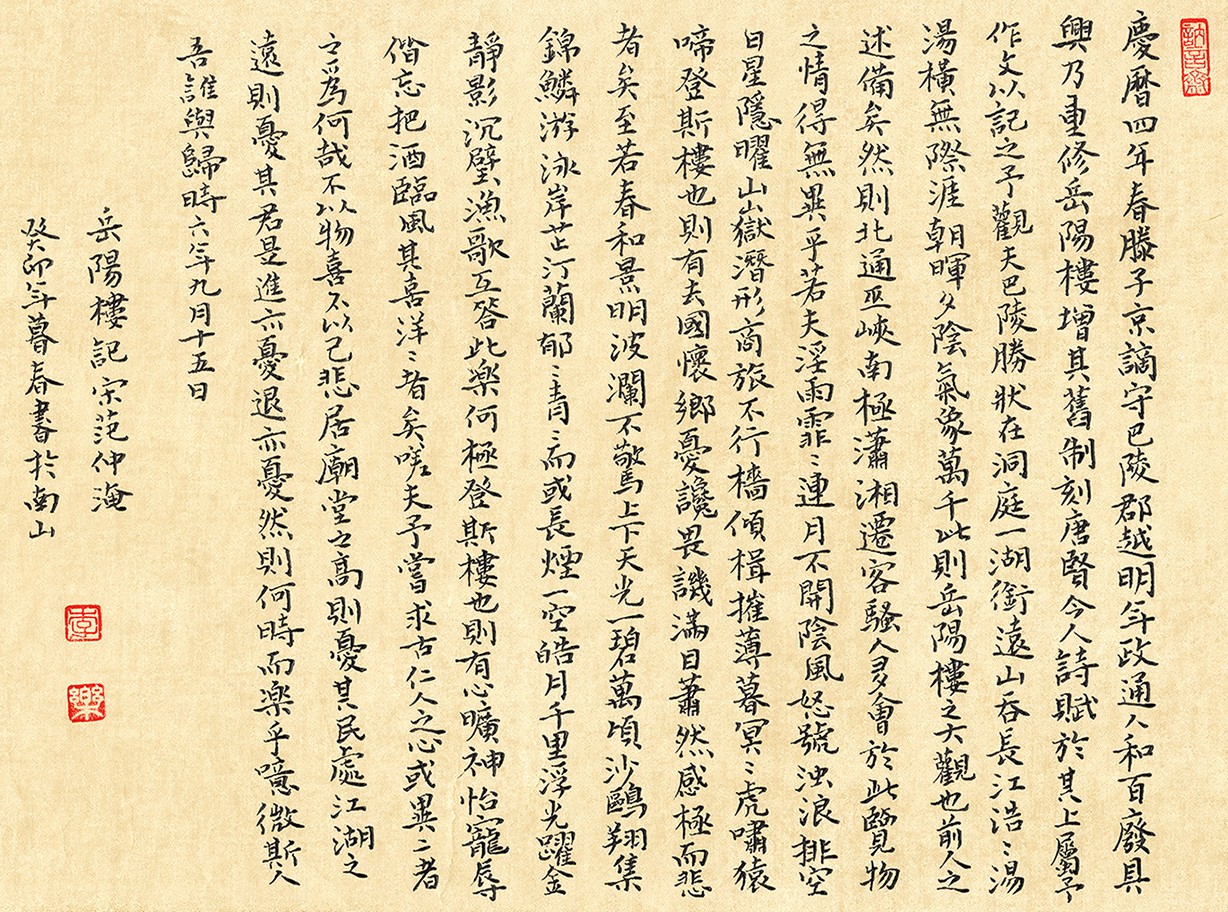 慶曆四年春滕子京謫守巴陵郡越明年政通人和百廢具
興乃重修岳陽樓增其舊制刻唐賢今人詩賦於其上屬予
作文以記之予觀夫巴陵勝狀在洞庭一湖銜遠山吞長江浩〻湯
湯橫無際涯朝暉夕陰氣象萬千此則岳陽樓之大觀也前人之
述備矣然則北通巫峽南極瀟湘遷客騷人多會於此覽物
之情得無異乎若夫淫雨霏〻連月不開陰風怒號浊浪排空
日星隱曜山嶽潛形商旅不行檣傾楫摧薄暮冥〻虎嘯猿
啼登斯樓也則有去國懷鄉憂讒畏譏滿目蕭然感極而悲
者矣至若春和景明波瀾不驚上下天光一碧萬頃沙鷗翔集
錦鱗游泳岸芷汀蘭郁〻青〻而或長煙一空皓月千里浮光躍金
靜影沉璧漁歌互答此樂何極登斯樓也則有心曠神怡寵辱
偕忘把酒臨風其喜洋〻者矣嗟夫予嘗求古仁人之心或異二者
之為何哉不以物喜不以己悲居廟堂之高則憂其民處江湖之
遠則憂其君是進亦憂退亦憂然則何時而樂乎噫微斯人
吾誰與歸時六年九月十五日
岳陽樓記宋范仲淹
癸卯年暮春書於南山
李
樂